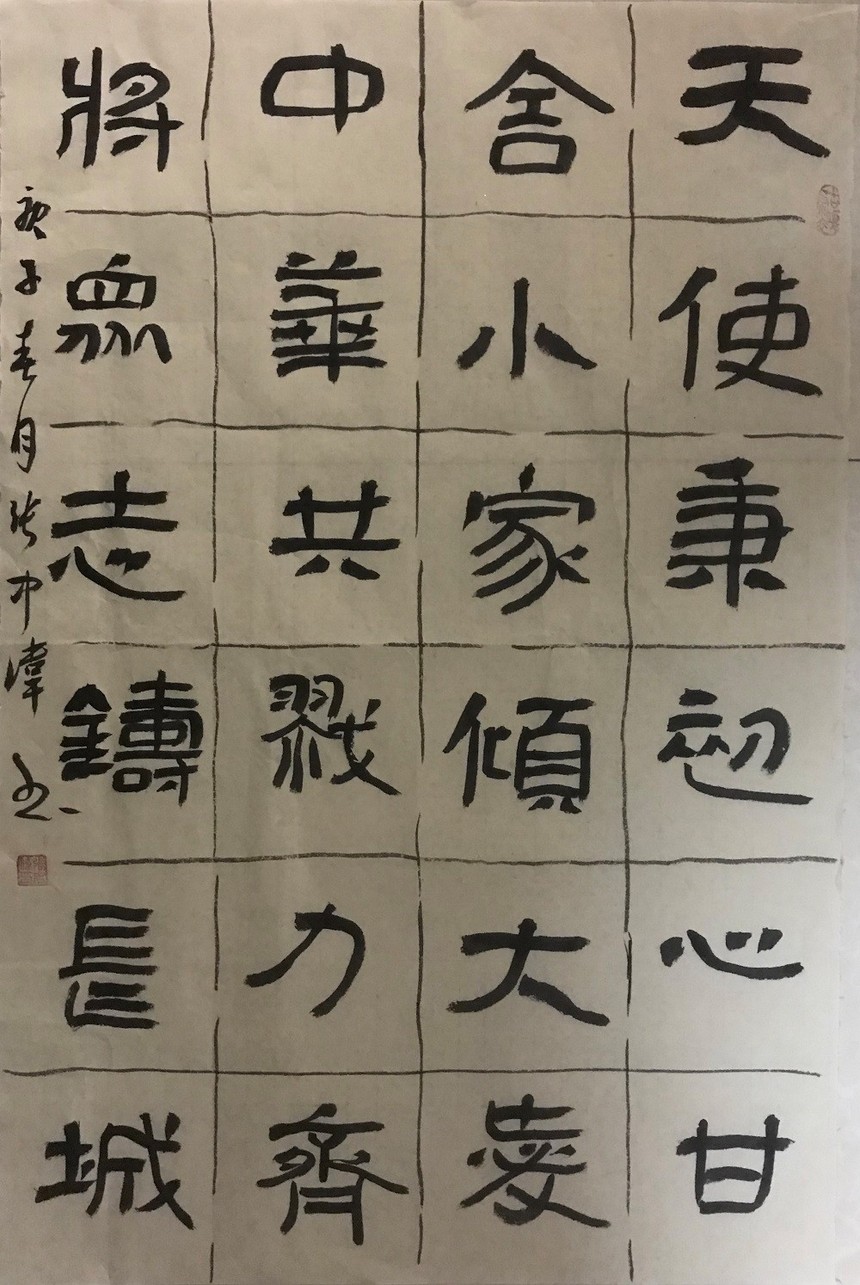 天使秉初心甘
舍小家傾大愛
中華共戮力齊
將衆志鑄長城
庚子春月张中偉书